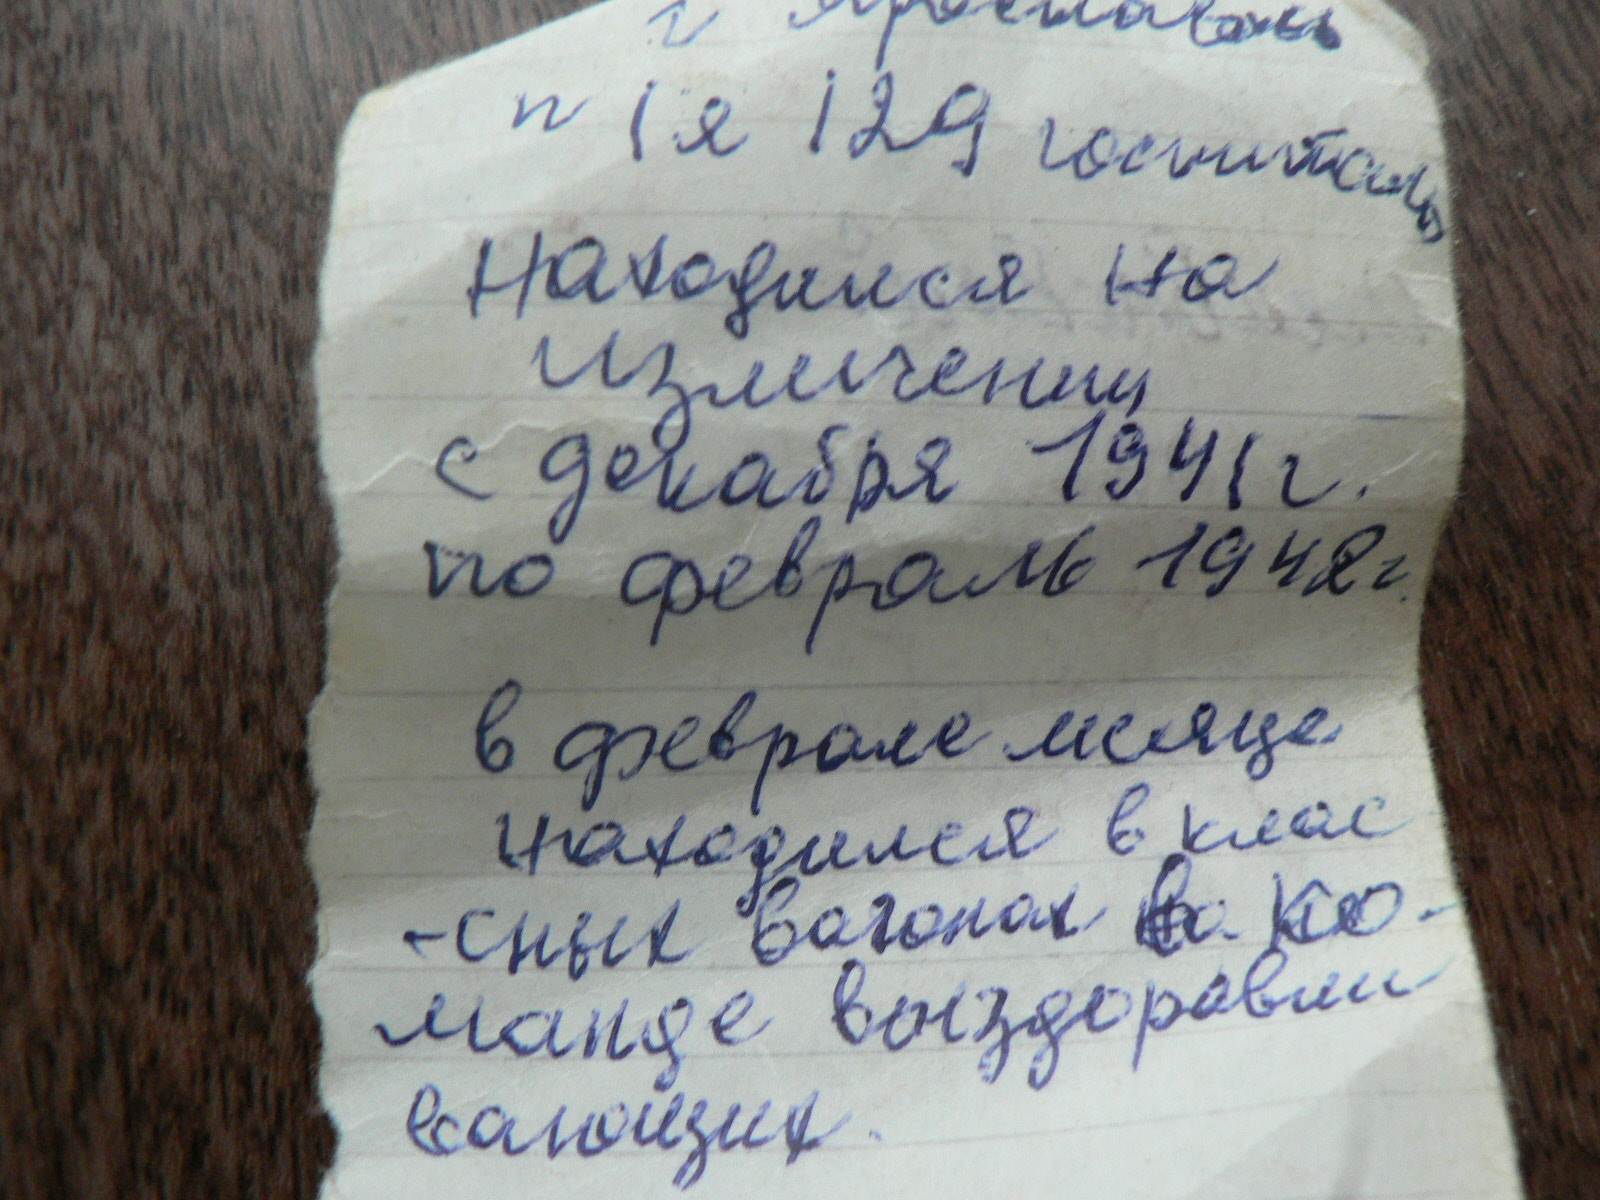 г Ярославль
п/я 129 госпиталь
Находился на
изличении
с декабря 1941г.
по февраль 1942г.
в феврале месяце
находился в клас
-сных вагонах в ко-
манде выздоравли
вающих.